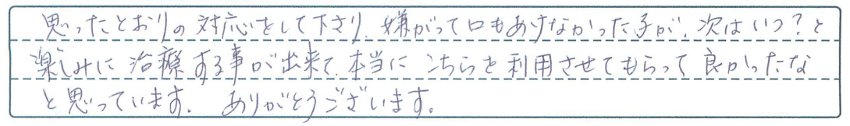 思ったとおりの対応をして下さり、嫌がって口もあけなかった子が、次はいつ?と
楽しみに治療する事が出来て、本当にこちらを利用させてもらって良かったな
と思っています。ありがとうございます。